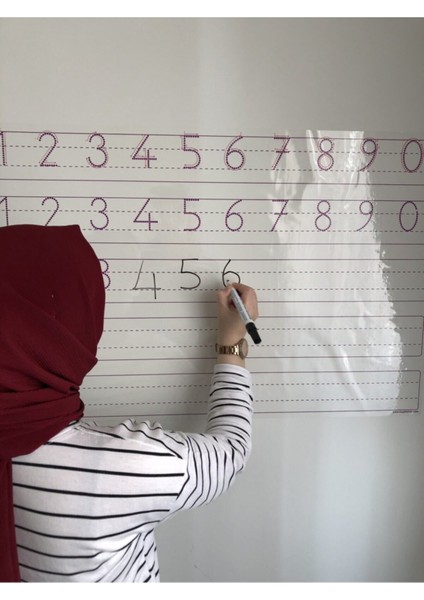 1 2 3 4 5 6 7 8 9 0
1 2 3 4 5 6 7 8 9 0
3 4 5 6